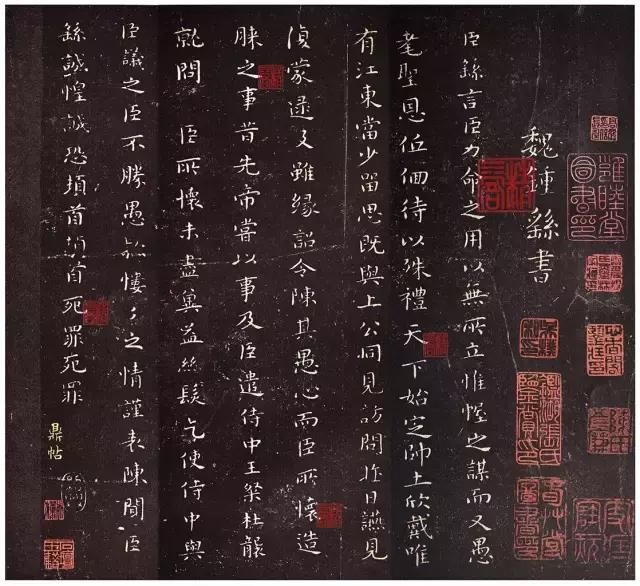 魏鍾繇書
臣繇言臣力命之用以無所立惟幄之謀而又愚
耄聖恩低佪待以殊禮天下始定師土欣戴唯
有江東當少留思既與上公同見訪問昨日讌見
復蒙逮及雖緣詔令陳其愚心而臣所懷造
膝之事昔先帝嘗以事及臣遣侍中王粲杜襲
就問 臣所懷未盡冀益絲髮乞使侍中與
臣議之臣不勝愚款慺々之情謹表陳聞臣
繇誠惶誠恐頓首頓首死罪死罪
鼎帖